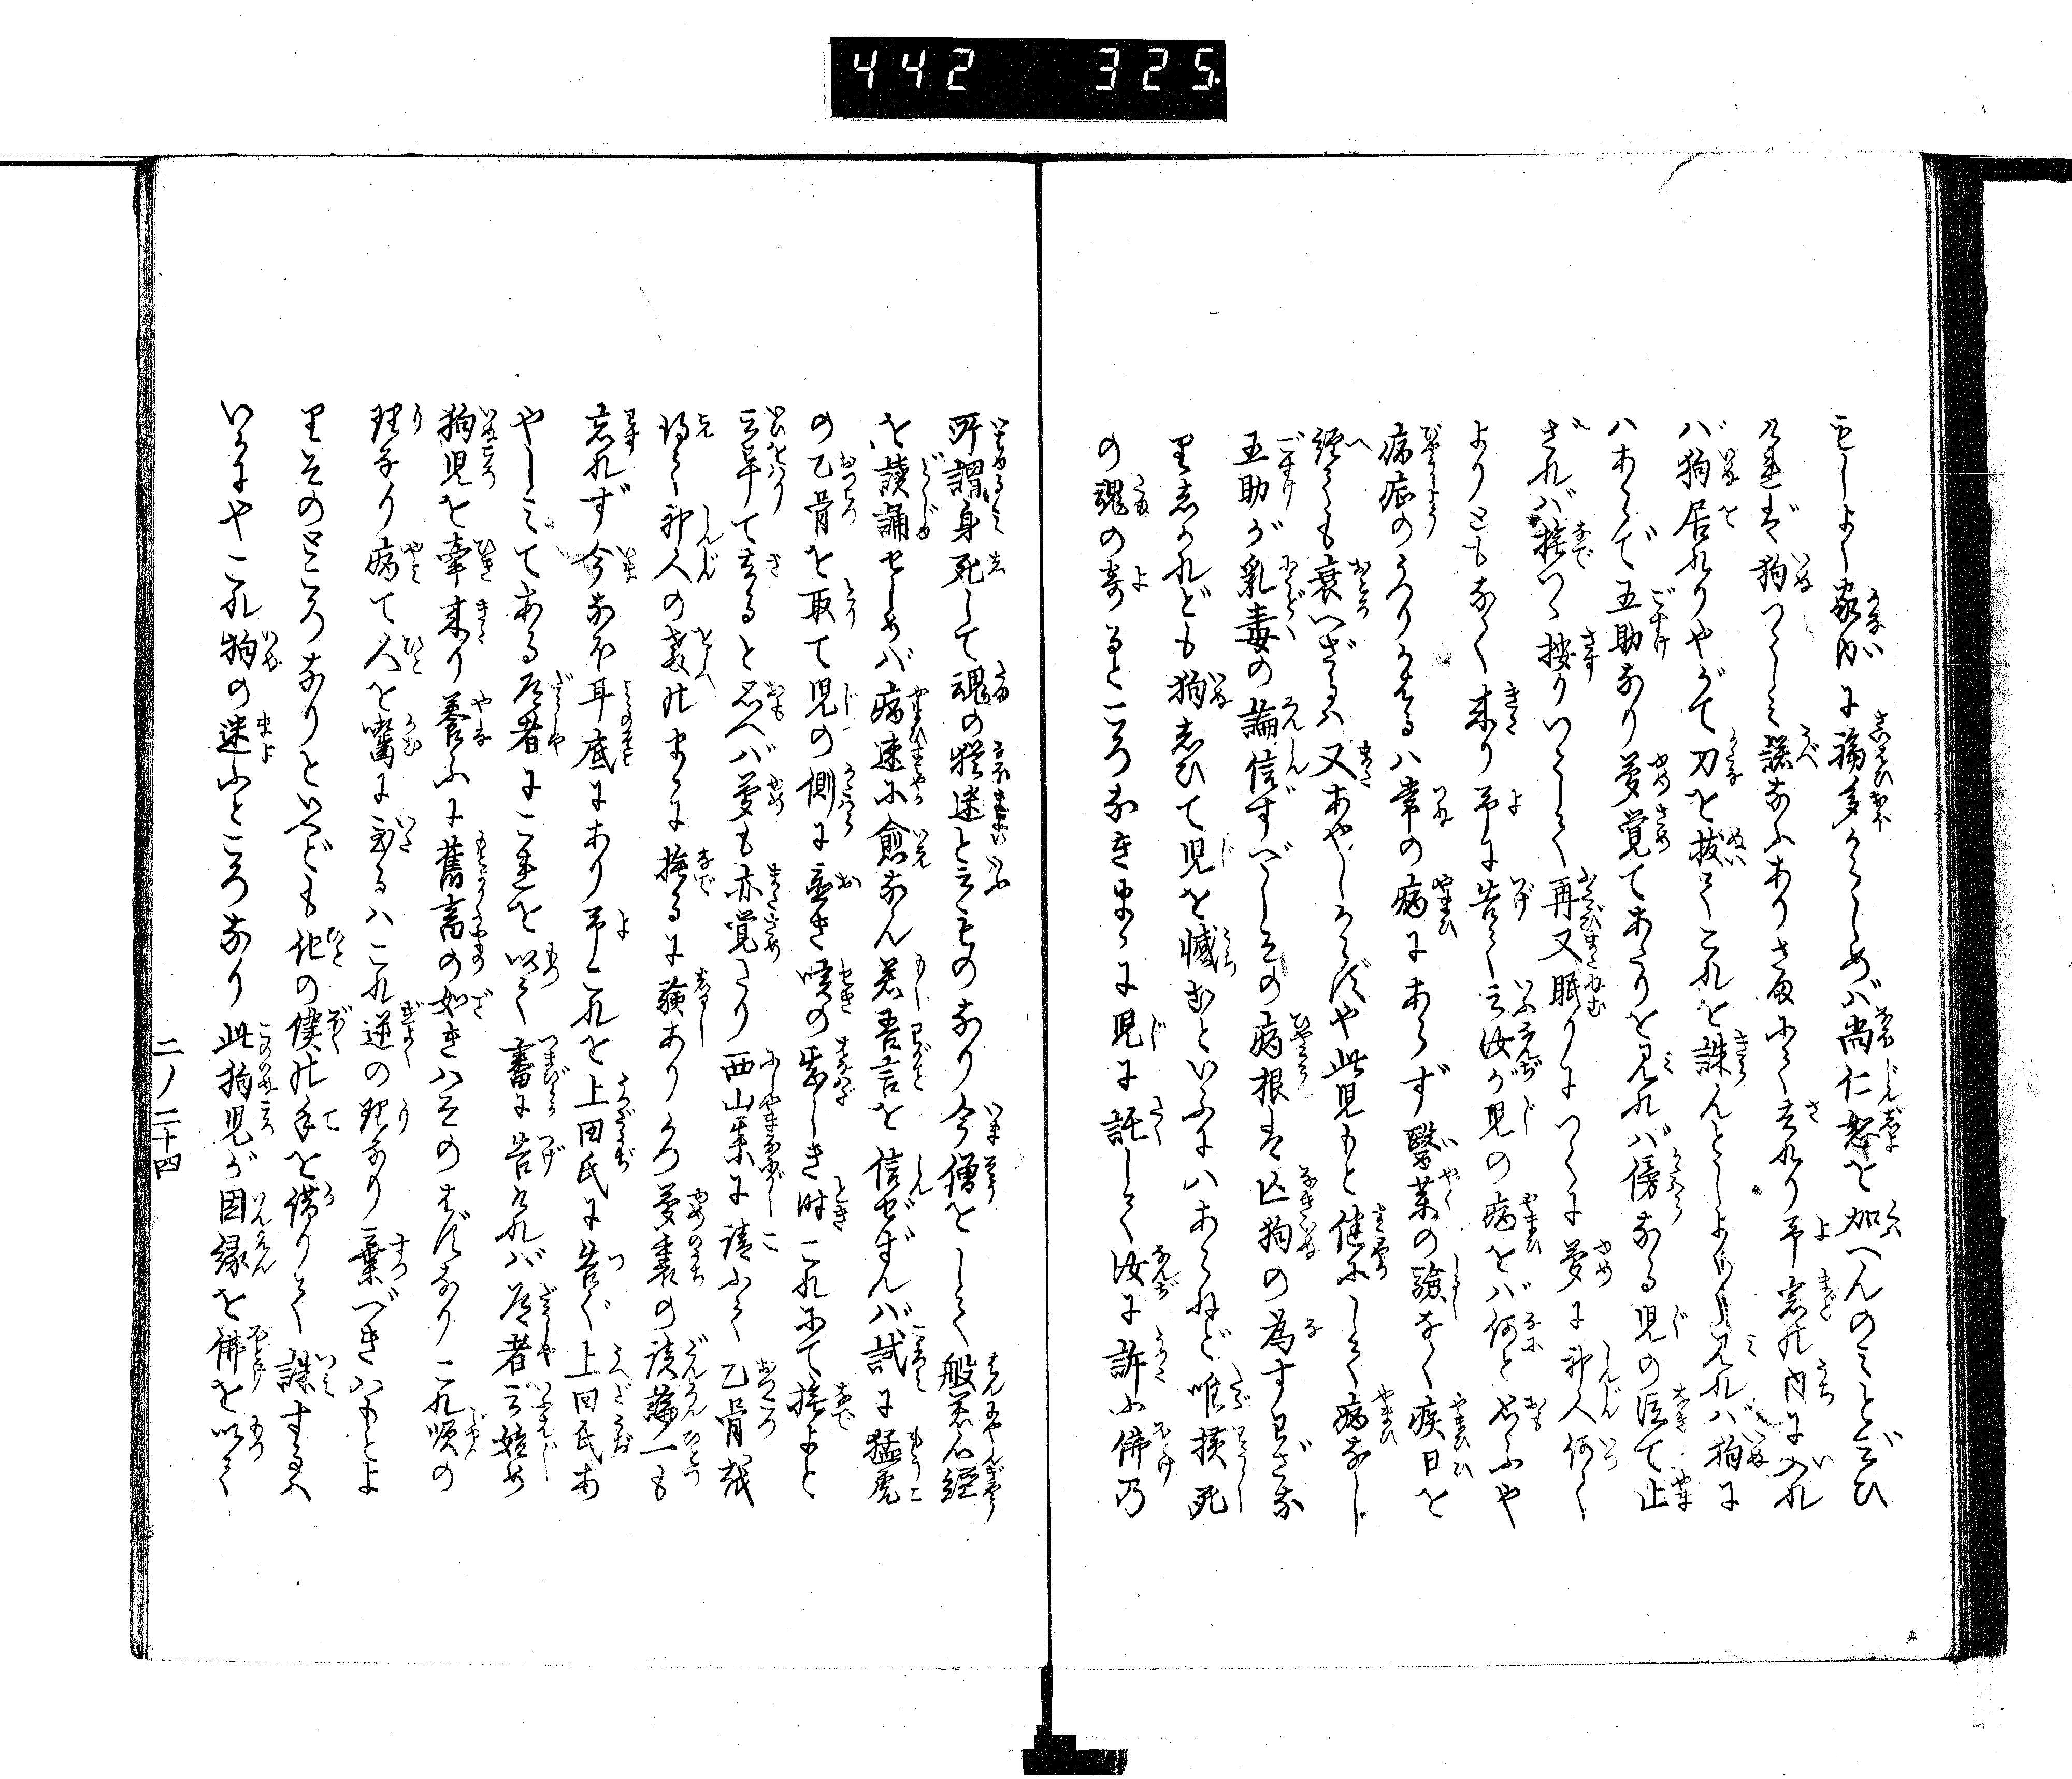 442 325
もしよく家内に禍多からしめバ尚仁恕を加へんのみとぞひ
のたまへば狗つくし〳〵諾なふありさまにて去れり予窓の内に入れ
バ狗居れりやがて刀を抜てこれを誅んとしよりて見れバ狗に
ハあらで五助なり夢覚てあたりを見れバ傍なる児の泣て止
ざれバ撫つゝ按りいつしか再又眠りにつくに夢に神人何く
よりとも なく来り予に告て云汝が児の病をバ何と思ふや
病症のうつりかはるハ常の病にあらず医薬の験なく疾日を
経ても衰へざるハ又あやしからずや此児もと健にして病なし
五助が乳毒の論信ずべしその病根は亡狗の為すわざな
里しかれども狗しひて児を憾むといふにハあらねど唯横死
の魂の寄るところなきまゝに児に託して汝に訴ふ佛乃
所謂身死して魂の猶迷と云ものなり今僧をして般若心経
を讀誦せしめバ病速に愈なん若吾言を信ぜずんバ試に猛虎
の乙骨を取て児の側に置き啼の甚しき時これにて撫よと
云畢て去ると思へバ夢も亦覚たり西山某に請ふて乙骨を
得て神人の教のまゝに撫るに験ありかつ夢裏の談論一も
忘れず今なほ耳底にあり予これを上田氏に告ぐ上田氏あ
やしみてある居者にこれを以て審に告けれバ居者云始め
狗児を牽来り養ふに舊畜の如きハそのはずなりこれ順の
理なり病て人を噛に至るハこれ逆の理なり棄べきハもとよ
里そのところなりといへども他の僕の手を借りて誅するハ
いかにやこれ狗の迷ふところなり此狗児が因縁を佛を以て
二ノ二十四